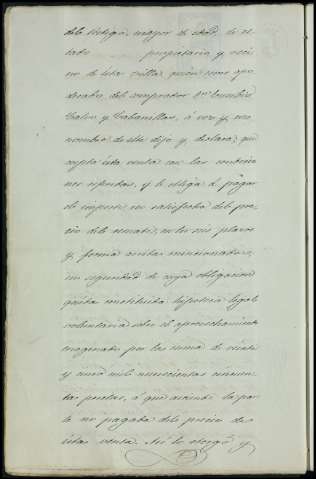 dela Ortiga, mayor de edad, de es-
tado propietario y veci-
no de esta Villa, quien como apo-
derado del comprador Dn Eusebio
Calvo y Cabanillas, á voz y en
nombre de este dijo y declara; que
acepta esta venta con las mencio-
nes espuestas, y se obliga á pagar
el importe no satisfecho del pre-
cio del remate, en los mis plazos
y forma antes mencionados,
en seguridad de cuya obligacion
queda constituida hipoteca legal
voluntaria sobre el aprovechamiento
enagenado por la suma de veinte
y nueve mil novecientas noven-
tas pesetas, á que asciende la par-
te no pagada del precio de
esta venta. Asi lo otorgó y